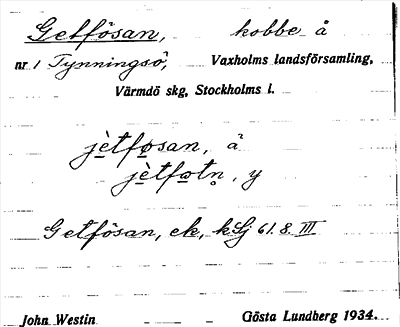 Getfösan, kobbe å
nr 1 Tynningsö, Vaxholms landsförsamling,
Värmdö skg, Stockholms l.
jètføsan, ä
jètføtn̥, y
Getfösan, ek, kSj 61. 8. III
John Westin Gösta Lundberg 1934.